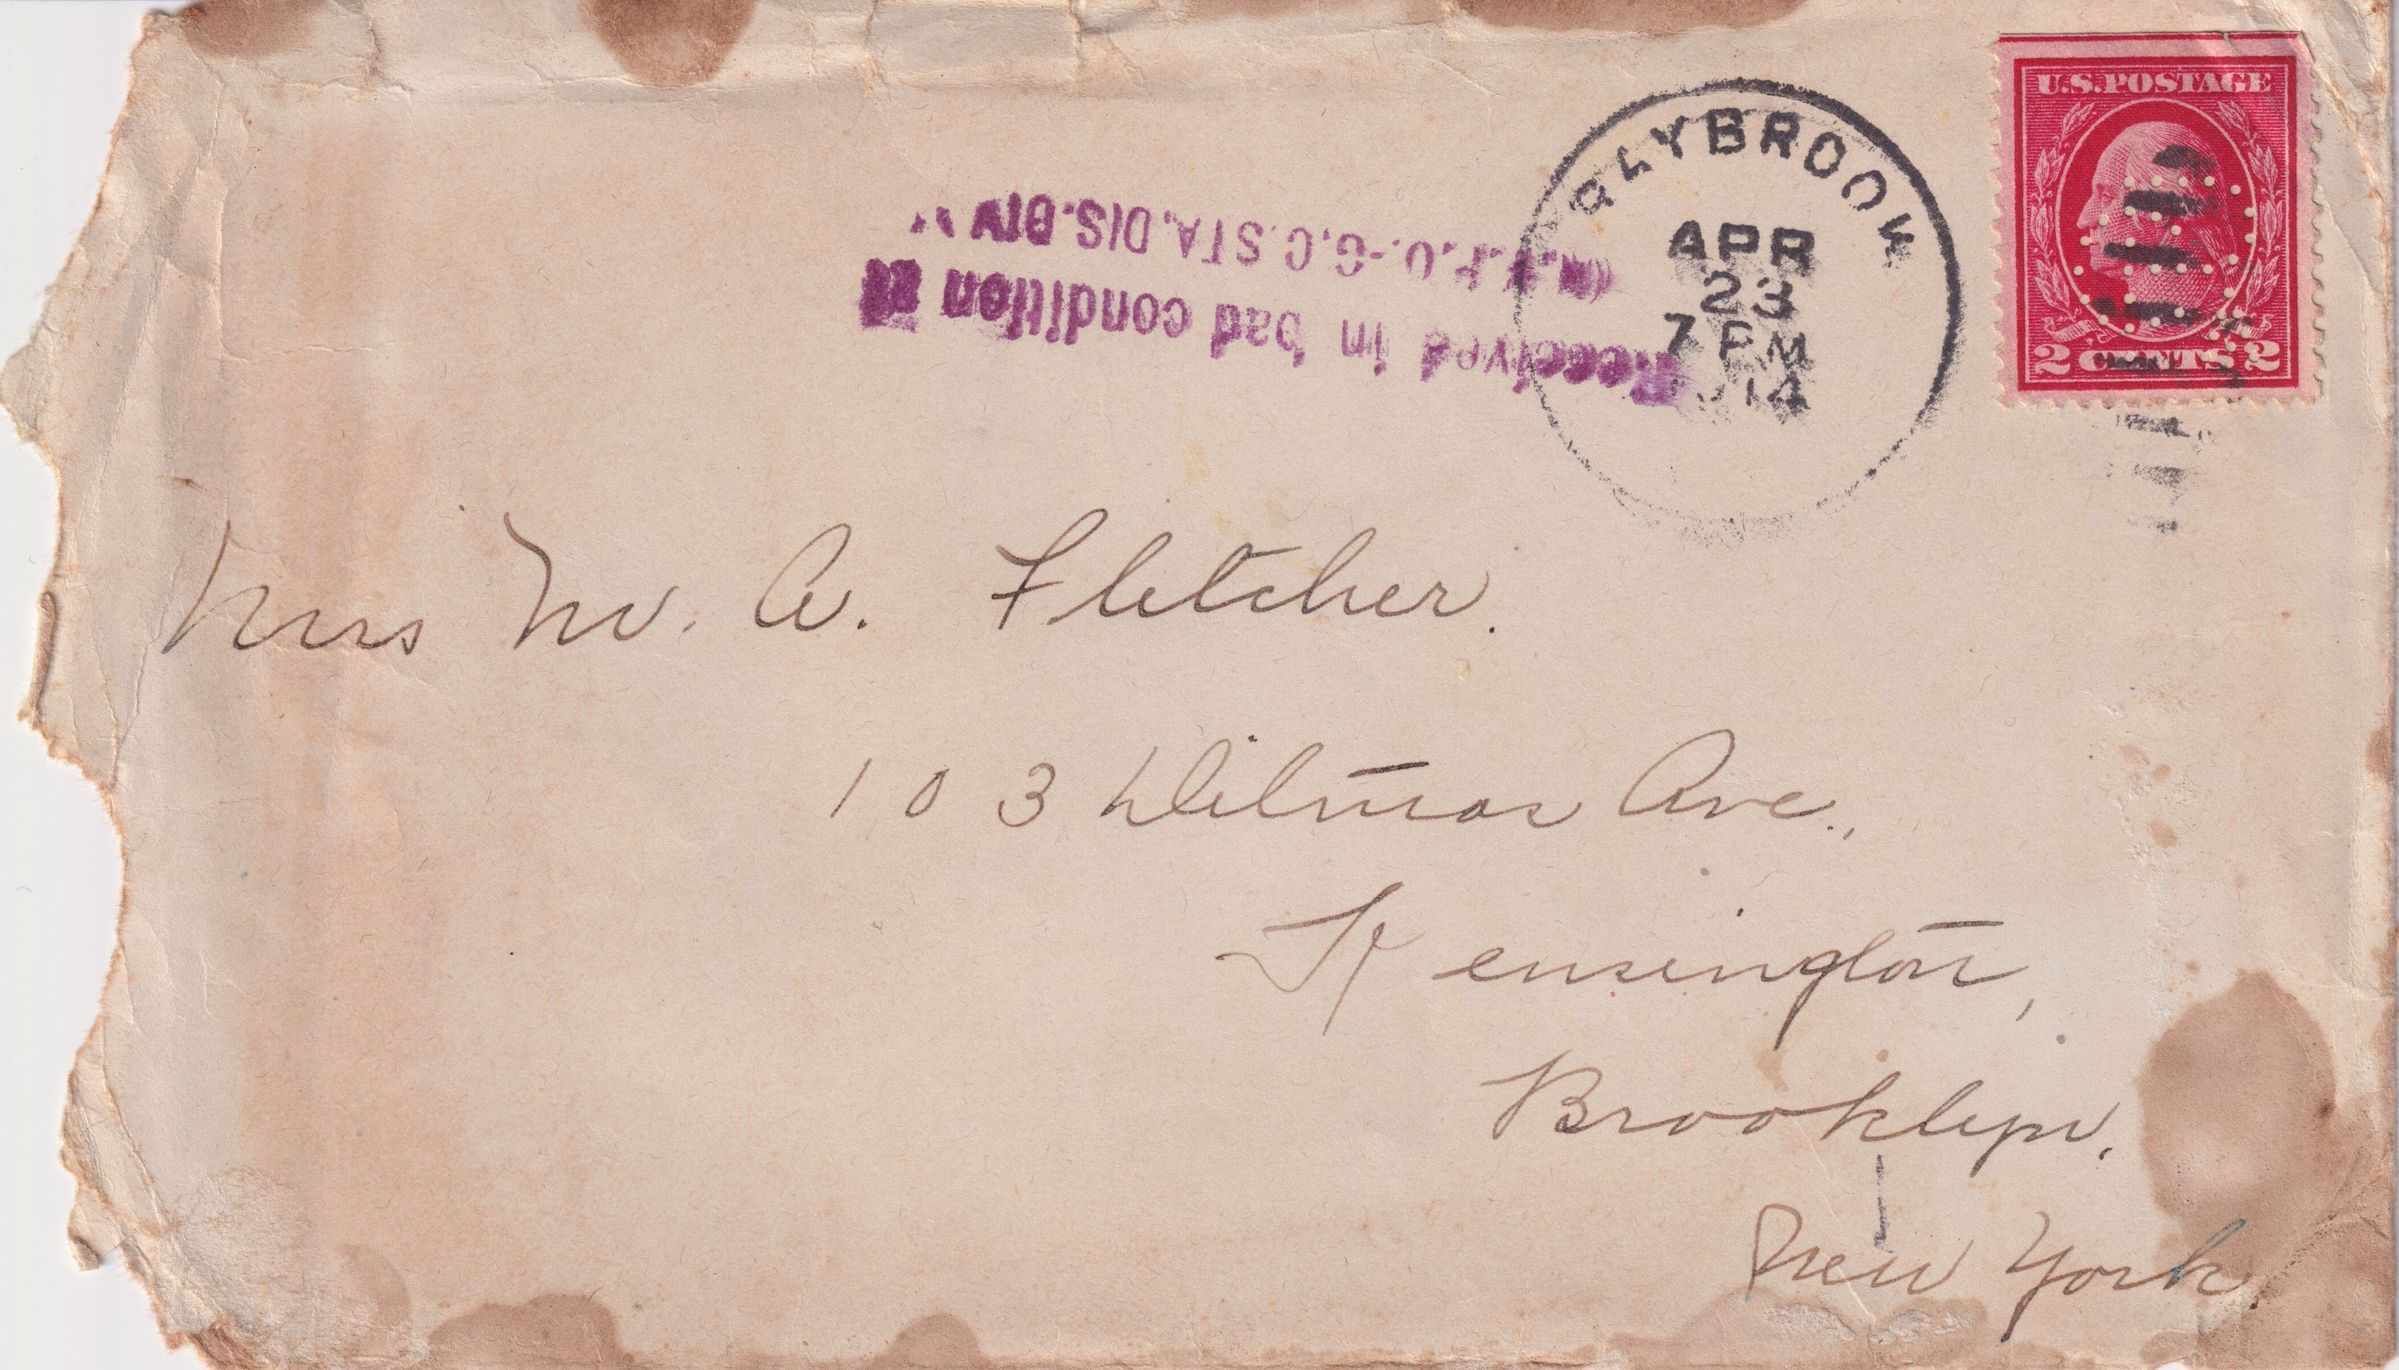 U.S. POSTAGE
2 CENTS 2
APR
23
7 PM
Received in bad condition
G.C. STA. DIS. DIV
Mrs M. A. Fletcher.
103 Ditmas Ave.,
Kensington,
Brooklyn,
New York.